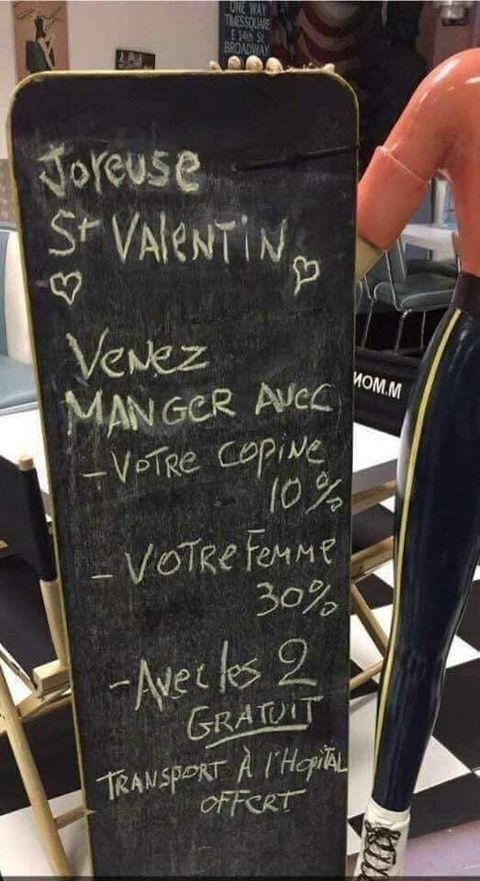 ONE WAY
TIMES SQUARE
E 14th St
BROADWAY
Joyeuse
St VALENTIN
VENEZ
MANGER AVEC
- VOTRE COPINE
10%
- VOTRE FEMME
30%
- Avec les 2
GRATUIT
TRANSPORT À l'HOPITAL
OFFERT
MOM.M